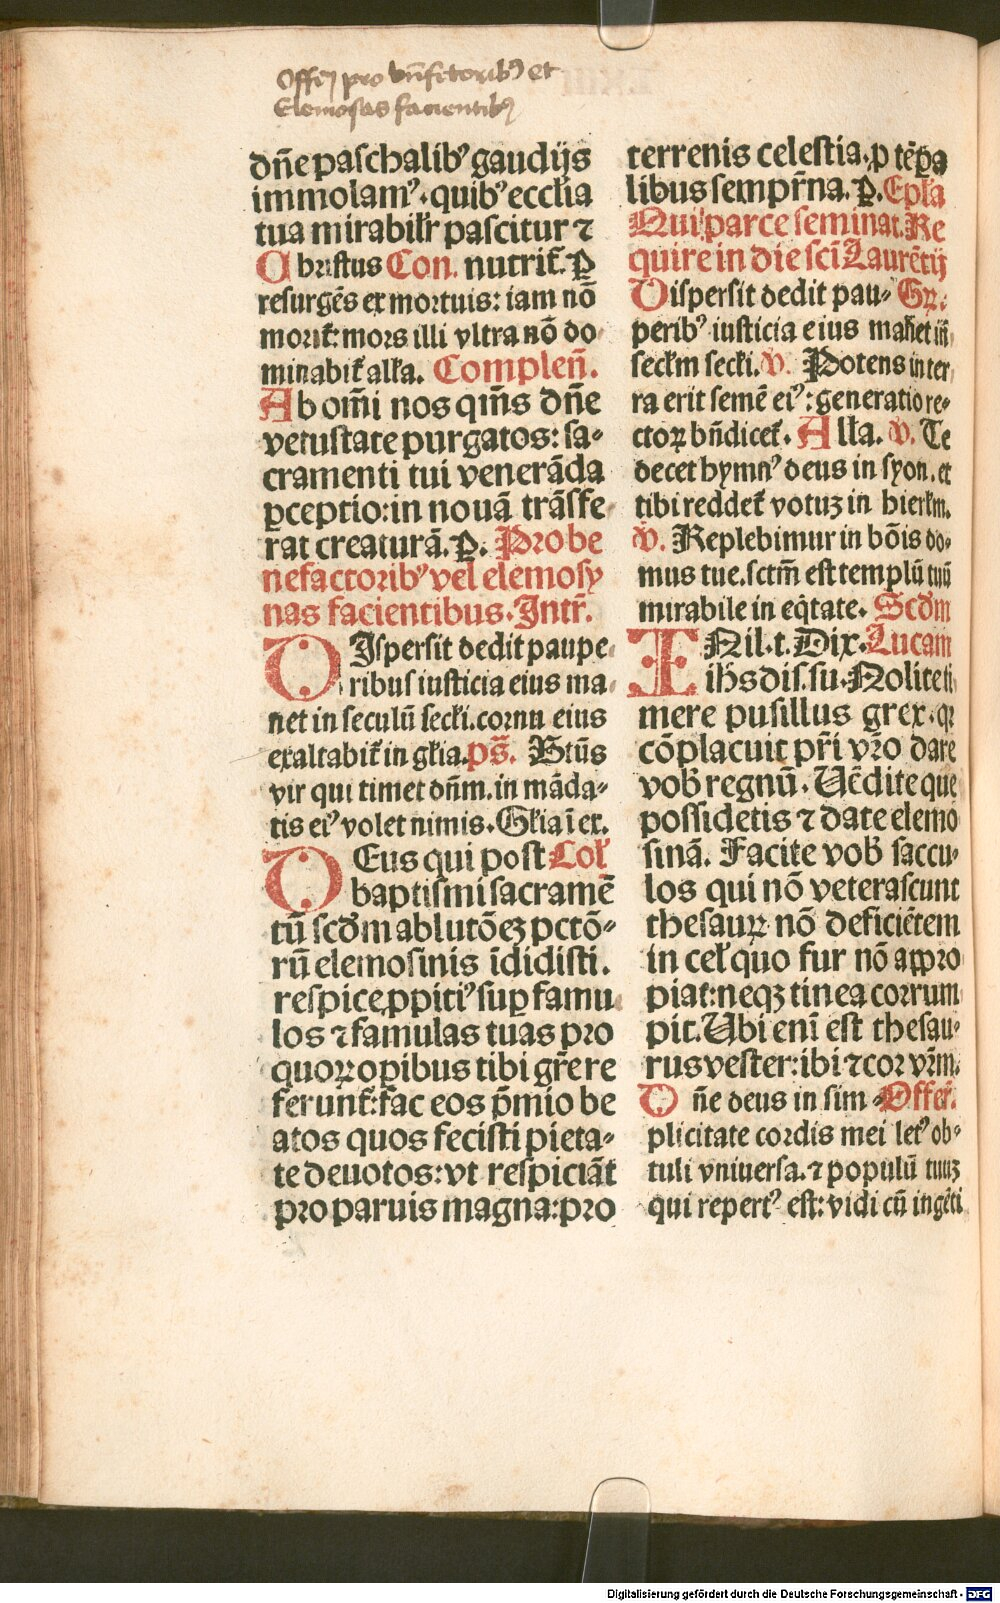 Offeꝝ pro bn̄fctoribꝰ et
Elemosȳas facientibꝰ
dn̄e paschalibꝰ gaudijs
immolamꝰ. quibꝰ eccl̄ia
tua mirabilr̄ pascitur ⁊
Christus Con. nutrit̄. P
resurgēs ex mortuis: iam nō
morit̄: mors illi vltra nō do
minabit̄ all̄a. Complen̄.
Ab om̄i nos qm̄s dn̄e
vetustate purgatos: sa-
cramenti tui venerāda
ꝑceptio: in nouā trāsfe
rat creaturā. P. Pro be
nefactoribꝰ vel elemosy
nas facientibus. Intr̄.
DIspersit dedit paupe
ribus iusticia eius ma
net in seculū secl̄i. cornu eius
exaltabit̄ in gl̄ia. ps̄. Btūs
vir qui timet dn̄m. in māda-
tis eiꝰ volet nimis. Gl̄ia ī ex.
DEus qui post Col̄
baptismi sacramē
tū scd̄m ablutōeꝫ pctō-
rū elemosinis īdidisti.
respice ꝓpitiꝰ suꝑ famu
los ⁊ famulas tuas pro
quoꝝ opibus tibi gr̄e re
ferunt̄: fac eos p̄mio be
atos quos fecisti pieta-
te deuotos: vt respiciāt
pro paruis magna: pro
terrenis celestia. ꝑ tēꝑa
libus sempr̄na. P. Epl̄a
Qui parce seminat. Re
quire in die sci̅ Laurētij
Dispersit dedit pau- Gꝝ.
peribꝰ iusticia eius manet in̄
secl̄m secl̄i. V. Potens in ter
ra erit semē eiꝰ: generatio re-
ctoꝝ bn̄dicet̄. All̄a. V. Te
decet hymnꝰ deus in syon. et
tibi reddet̄ votuꝫ in hierl̄m.
V. Replebimur in bōis do-
mus tue. sctm̄ est templū tuū
mirabile in eq̄tate. Scd̄m
IN il. t. Dix. Lucam
ih̄s dis. su. Nolite ti
mere pusillus grex. qꝛ
cōplacuit pr̄i vr̄o dare
vob̄ regnū. Uēdite que
possidetis ⁊ date elemo
sinā. Facite vob̄ saccu-
los qui nō veterascunt
thesauꝝ nō deficiētem
in cel̄ quo fur nō appro
piat: neqꝫ tinea corrum
pit. Ubi enī est thesau-
rus vester: ibi ⁊ cor vr̄m.
Dn̄e deus in sim- Offer̄.
plicitate cordis mei letꝰ ob-
tuli vniuersa. ⁊ populū tuuꝫ
qui repertꝰ est: vidi cū ingēti
Digitalisierung gefördert durch die Deutsche Forschungsgemeinschaft - DFG